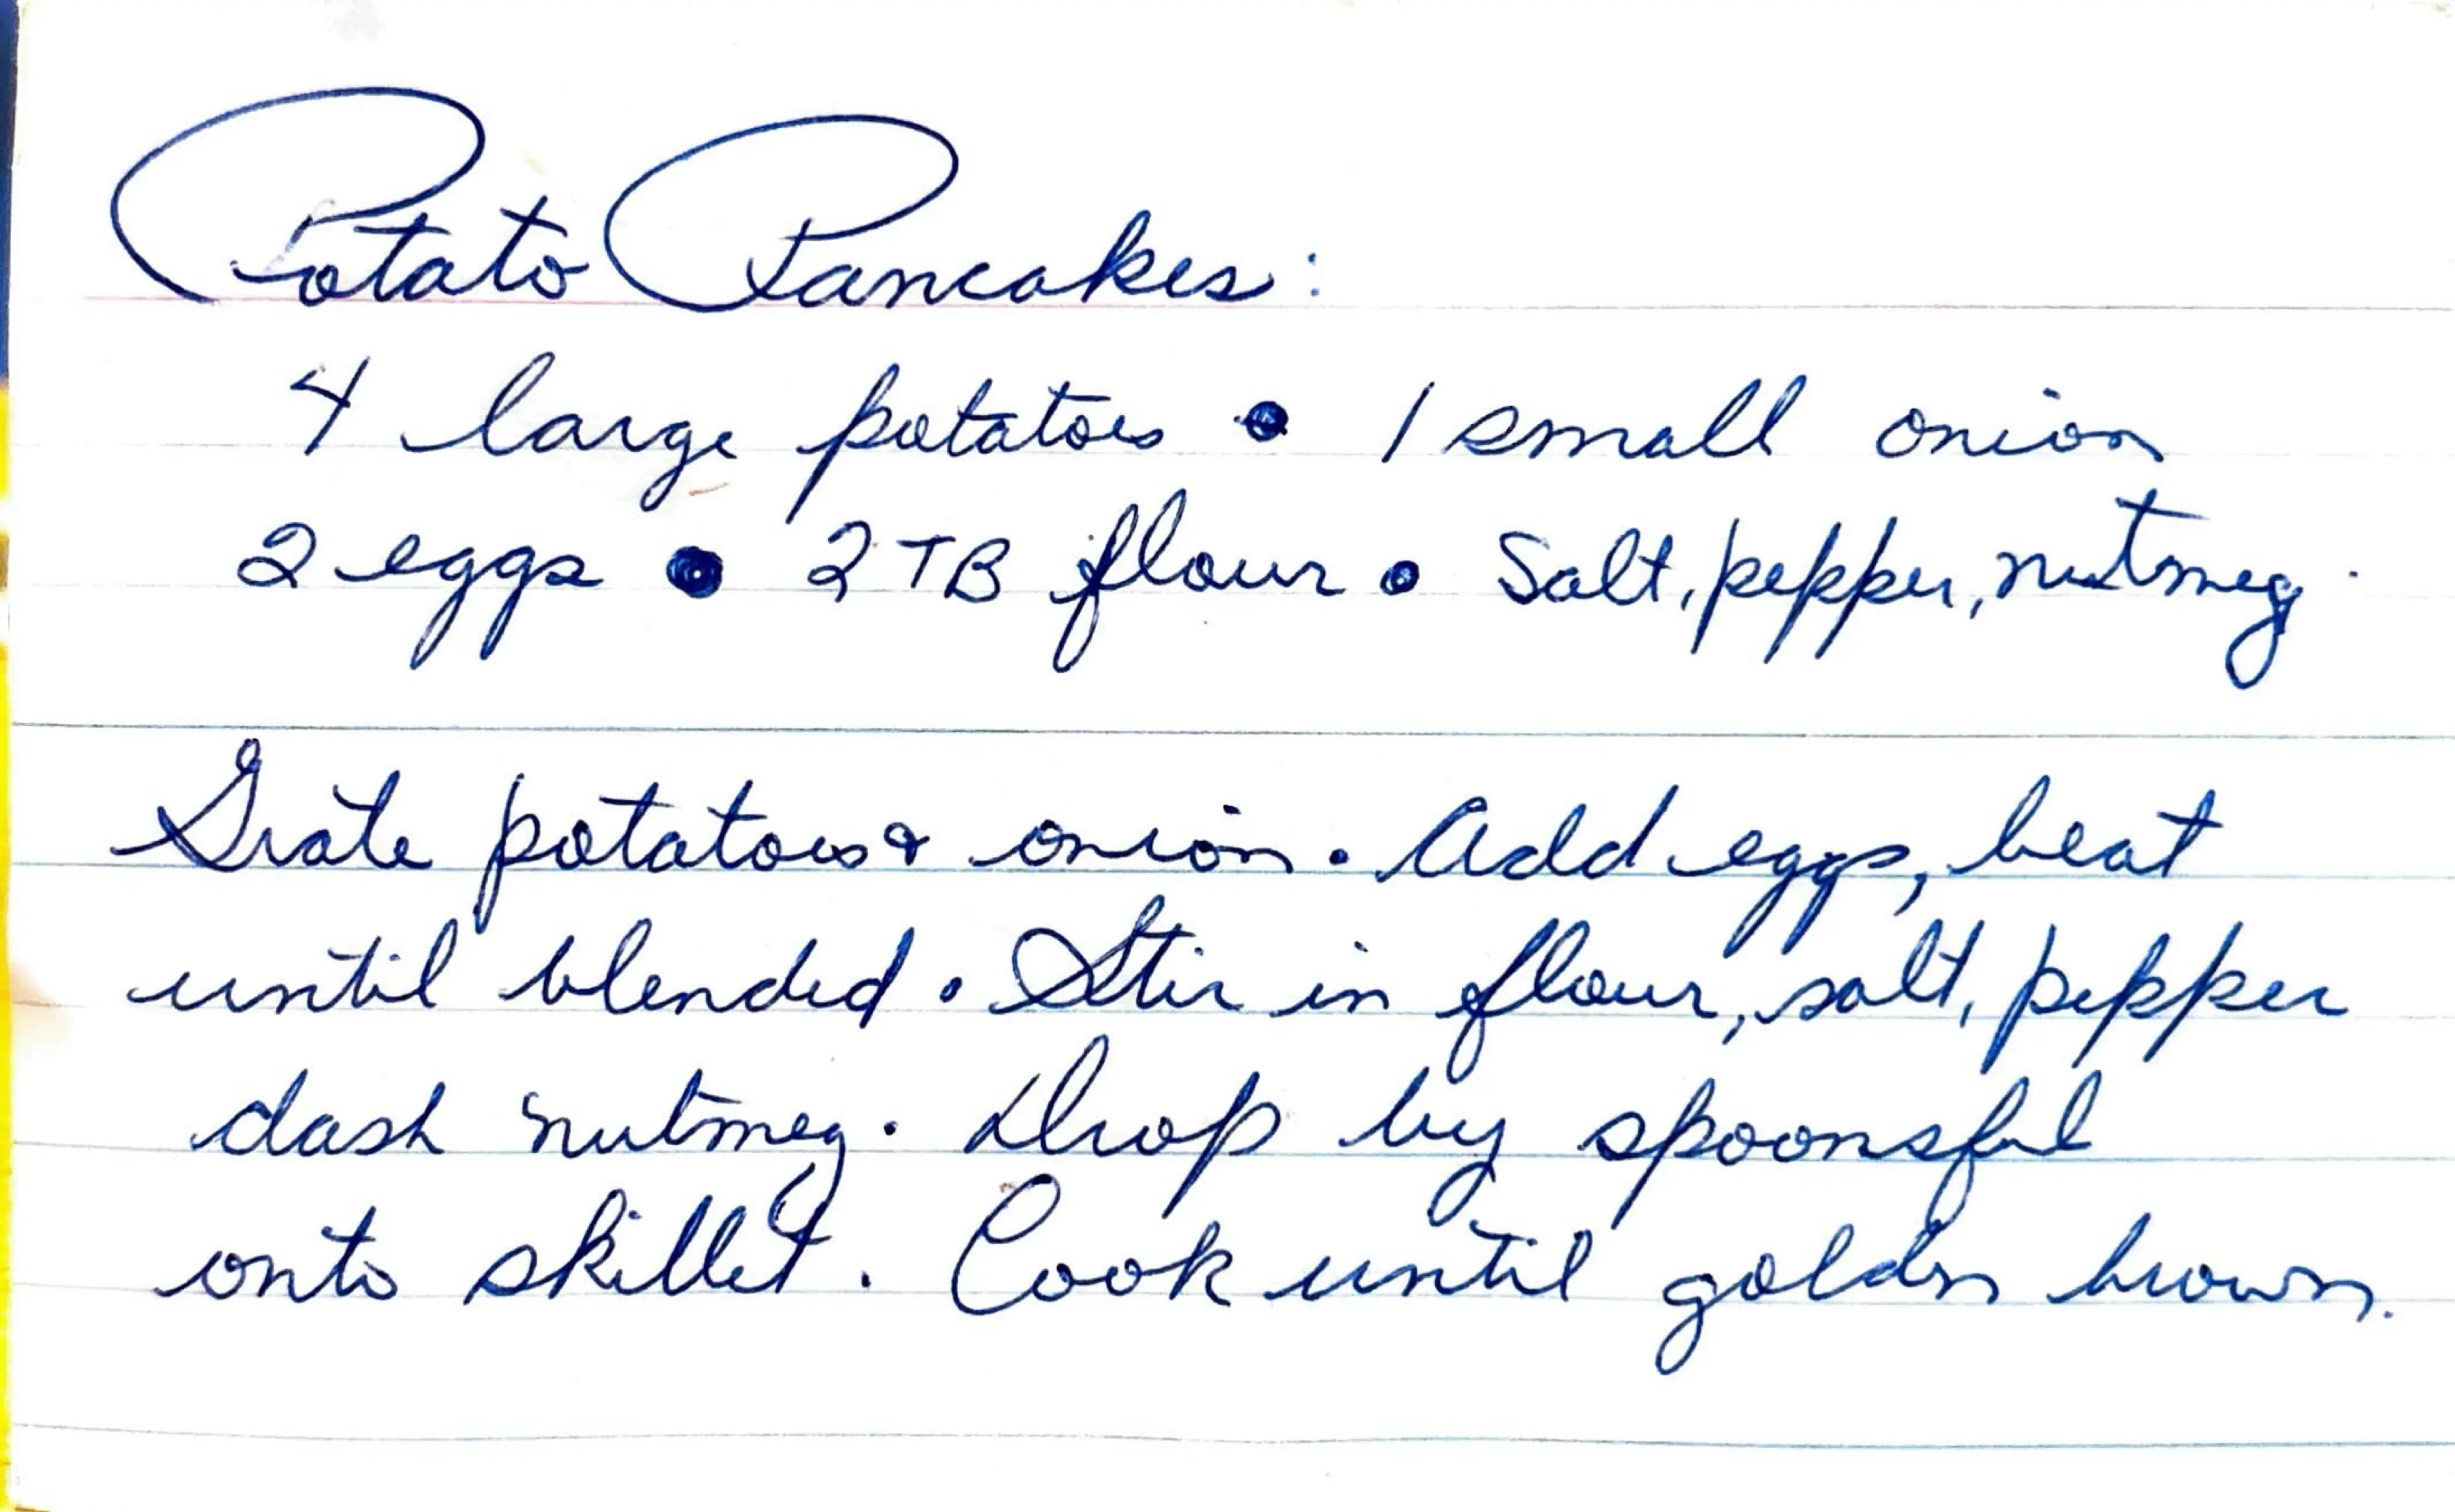 Potato Pancakes:
4 large potatoes • 1 small onion
2 eggs • 2 TB flour • Salt, pepper, nutmeg.
Grate potatoes & onion. Add eggs, beat
until blended. Stir in flour, salt, pepper
dash nutmeg. Drop by spoonsful
onto skillet. Cook until golden brown.